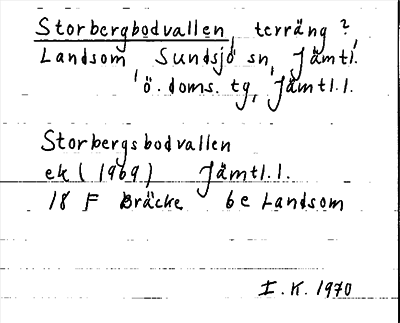 Storbergbodvallen, terräng?,
Landsom, Sundsjö sn, Jämtl.
ö. doms. tg, Jämtl. l.
Storbergsbodvallen
ek (1969) Jämtl. l.
18 F Bräcke be Landsom
I. K. 1970